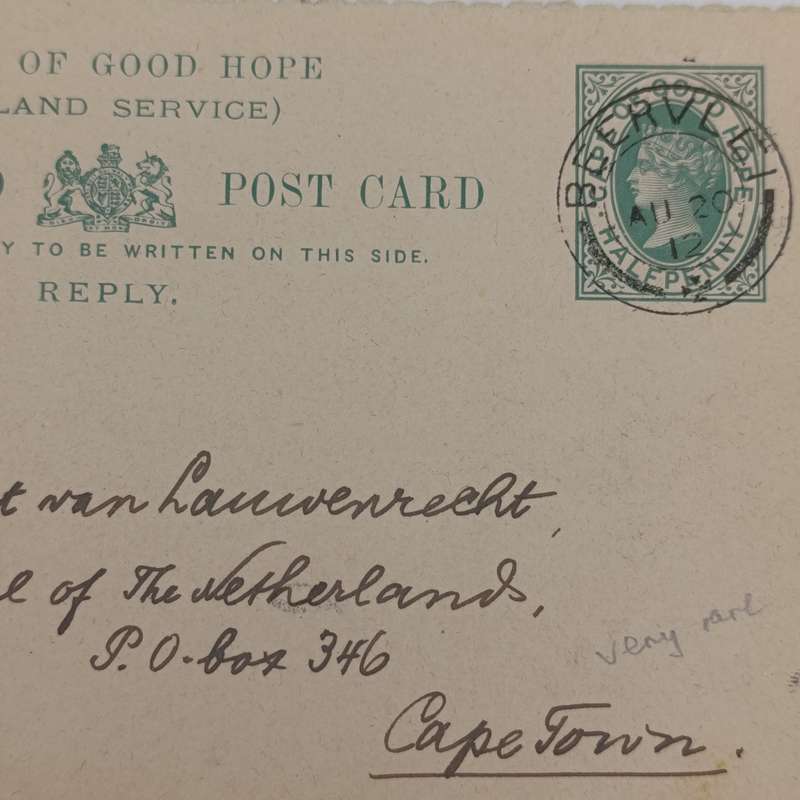 OF GOOD HOPE
LAND SERVICE)
POST CARD
Y TO BE WRITTEN ON THIS SIDE.
REPLY.
CAPE OF GOOD HOPE
HALFPENNY
AU 20
12
t van Lauwenrecht,
l of The Netherlands,
P. O. box 346
Cape Town.
very rare